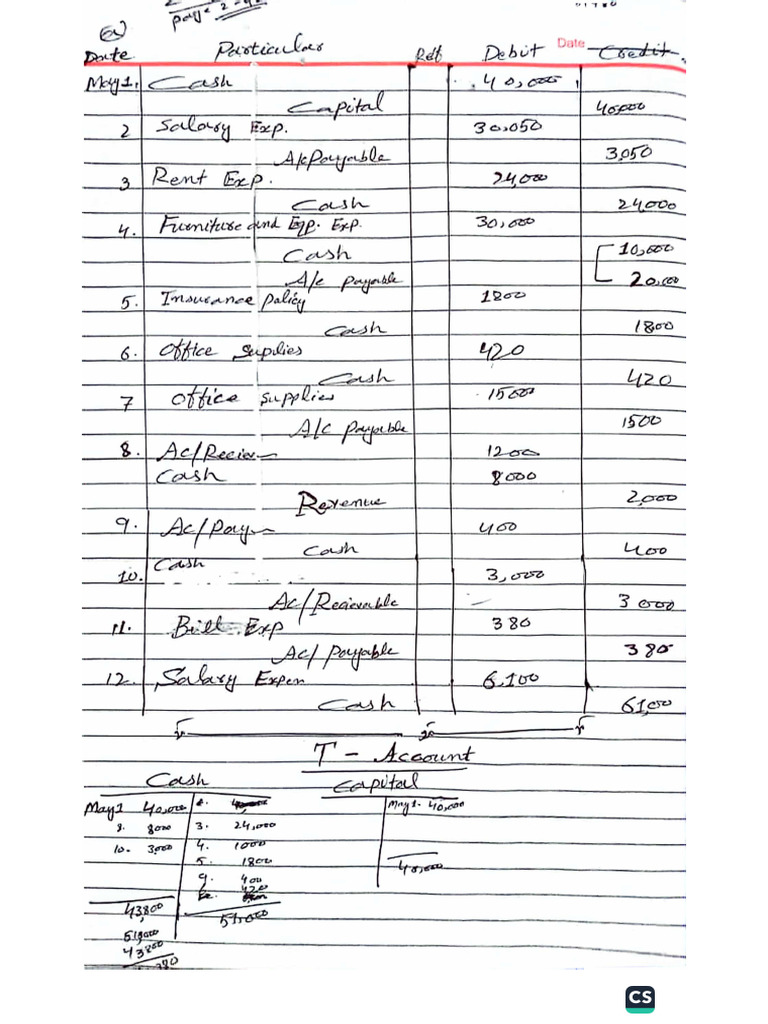 pay=
(a)
Date Particular Ref Debit Date Credit
May 1. Cash 40,000
Capital 40,000
2 Salary Exp. 30,050
A/c Payable 3,050
3 Rent Exp. 24,000
Cash 24000
4. Furniture and Eqp. Exp. 30,000
Cash 10,000
A/c payable 20,000
5. Insurance policy 1800
Cash 1800
6. Office Supplies 420
Cash 420
7 Office Supplies 1500
A/c payable 1500
8. Ac/Reciev 1200
Cash 8000
Revenue 2,000
9. Ac/Pay 400
Cash 400
10. Cash 3,000
Ac/Recievable 3000
11. Bill Exp 380
Ac/ Payable 380
12. Salary Expen 6,100
Cash 6100
T - Account
Cash Capital
May 1 40,000 May 1. 40,000
8. 8000 3. 24,000
10. 3,000 4. 1000
5. 1800
9. 400 40,000
420
43,800 51,000
51,000
43800
CS